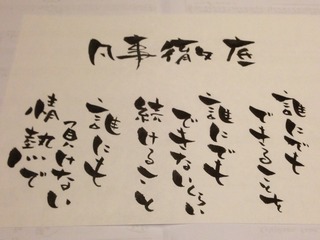 凡事徹底
誰にでも
できることを
誰にでも
できないくらい
続けること
誰にも
負けない
情熱で